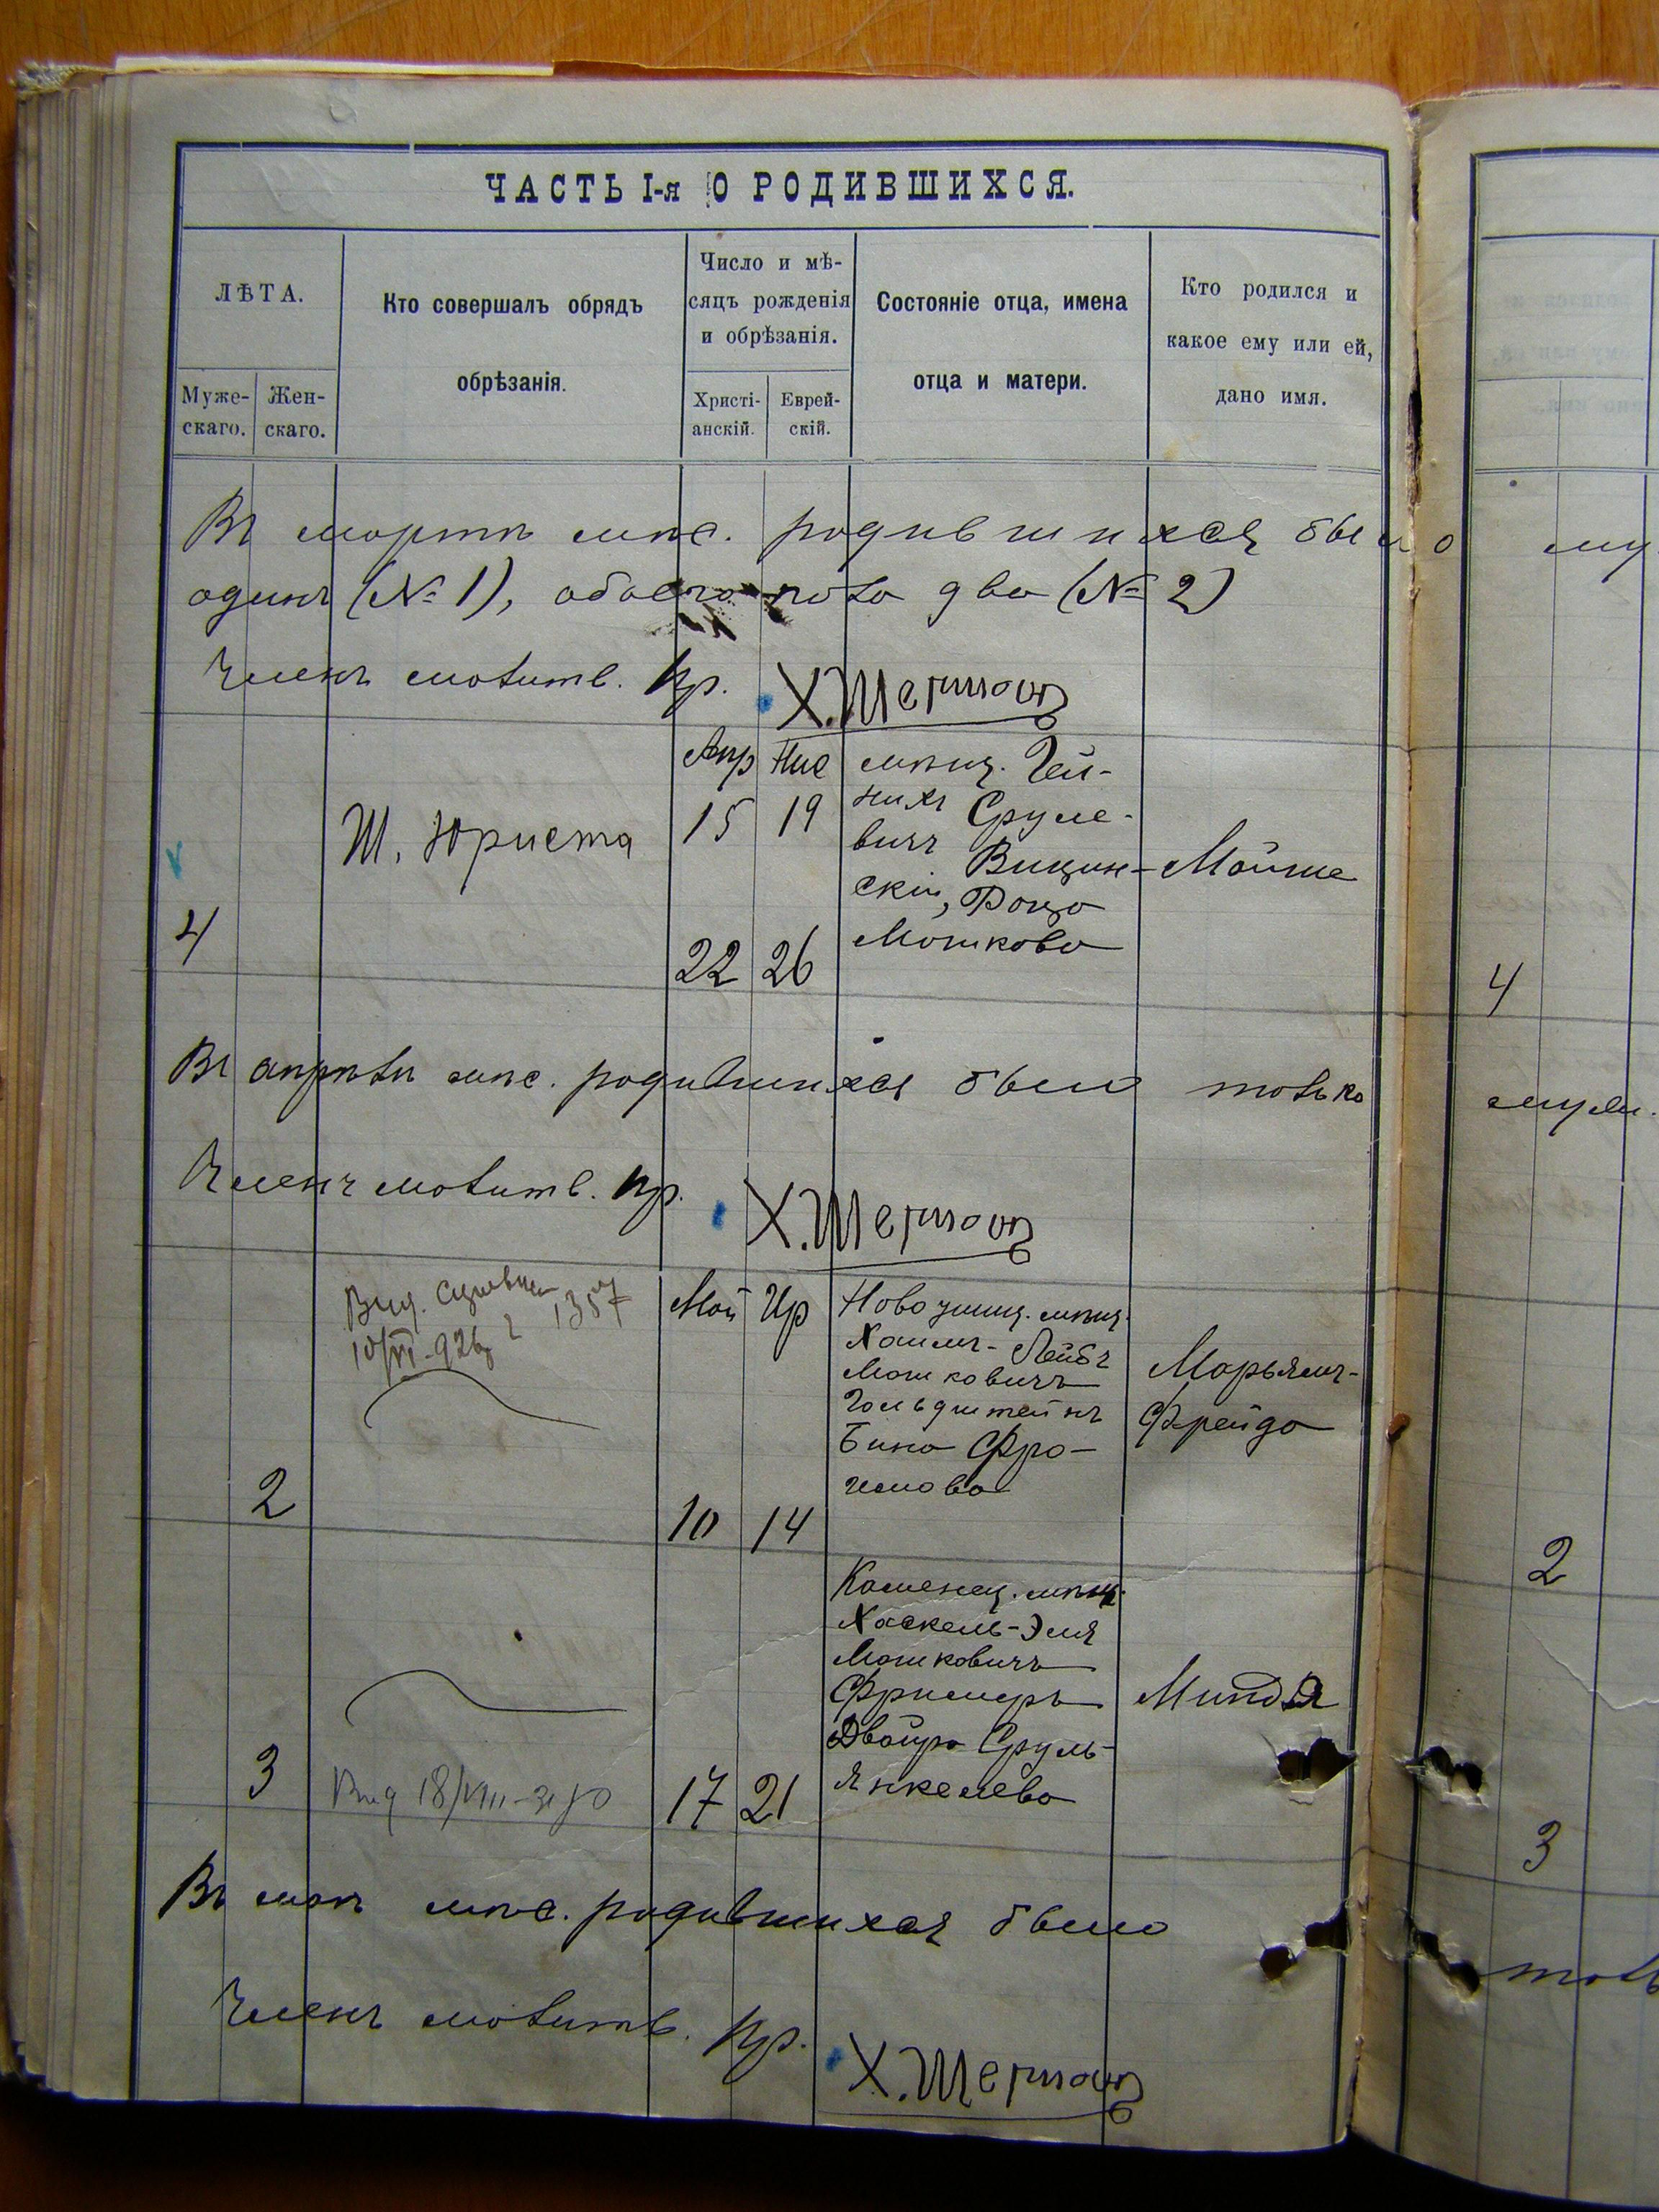 ЧАСТЬ I-я О РОДИВШИХСЯ.
ЛѢТА.
Муже-
скаго.
Жен-
скаго.
Кто совершалъ обрядъ
обрѣзанія.
Число и мѣ-
сяцъ рожденія
и обрѣзанія.
Христі-
анскій.
Еврей-
скій.
Состояніе отца, имена
отца и матери.
Кто родился и
какое ему или ей,
дано имя.
Въ мартѣ мѣс. родившихся было
одинъ (№ 1), обоего пола два (№ 2)
Членъ молитв. пр. Х. Шерман
4
Ш. Юриста
Апр Нис
15 19
22 26
мѣщ. Гей-
нихъ Сруле-
вичъ Вицин-
скій,
Мошкова
Мойше
4
Въ апрѣлѣ мѣс. родившихся было только
Членъ молитв. пр. Х. Шерман
2
Выд.
10/VI-926 г 1357
Май Ир
10 14
Новоушиц. мѣщ.
Хаимъ-Лейбъ
Мошковичъ
Гольдштейнъ
Бина Фро-
имова
Марьямъ-
Фрейда
2
3
Выд 18/VIII-
17 21
Каменец. мѣщ.
Хаскель-Эля
Мошковичъ
Фримеръ
Двойра Сруль-
Янкелева
Миндля
3
Въ маѣ мѣс. родившихся было
Членъ молитв. пр. Х. Шерман